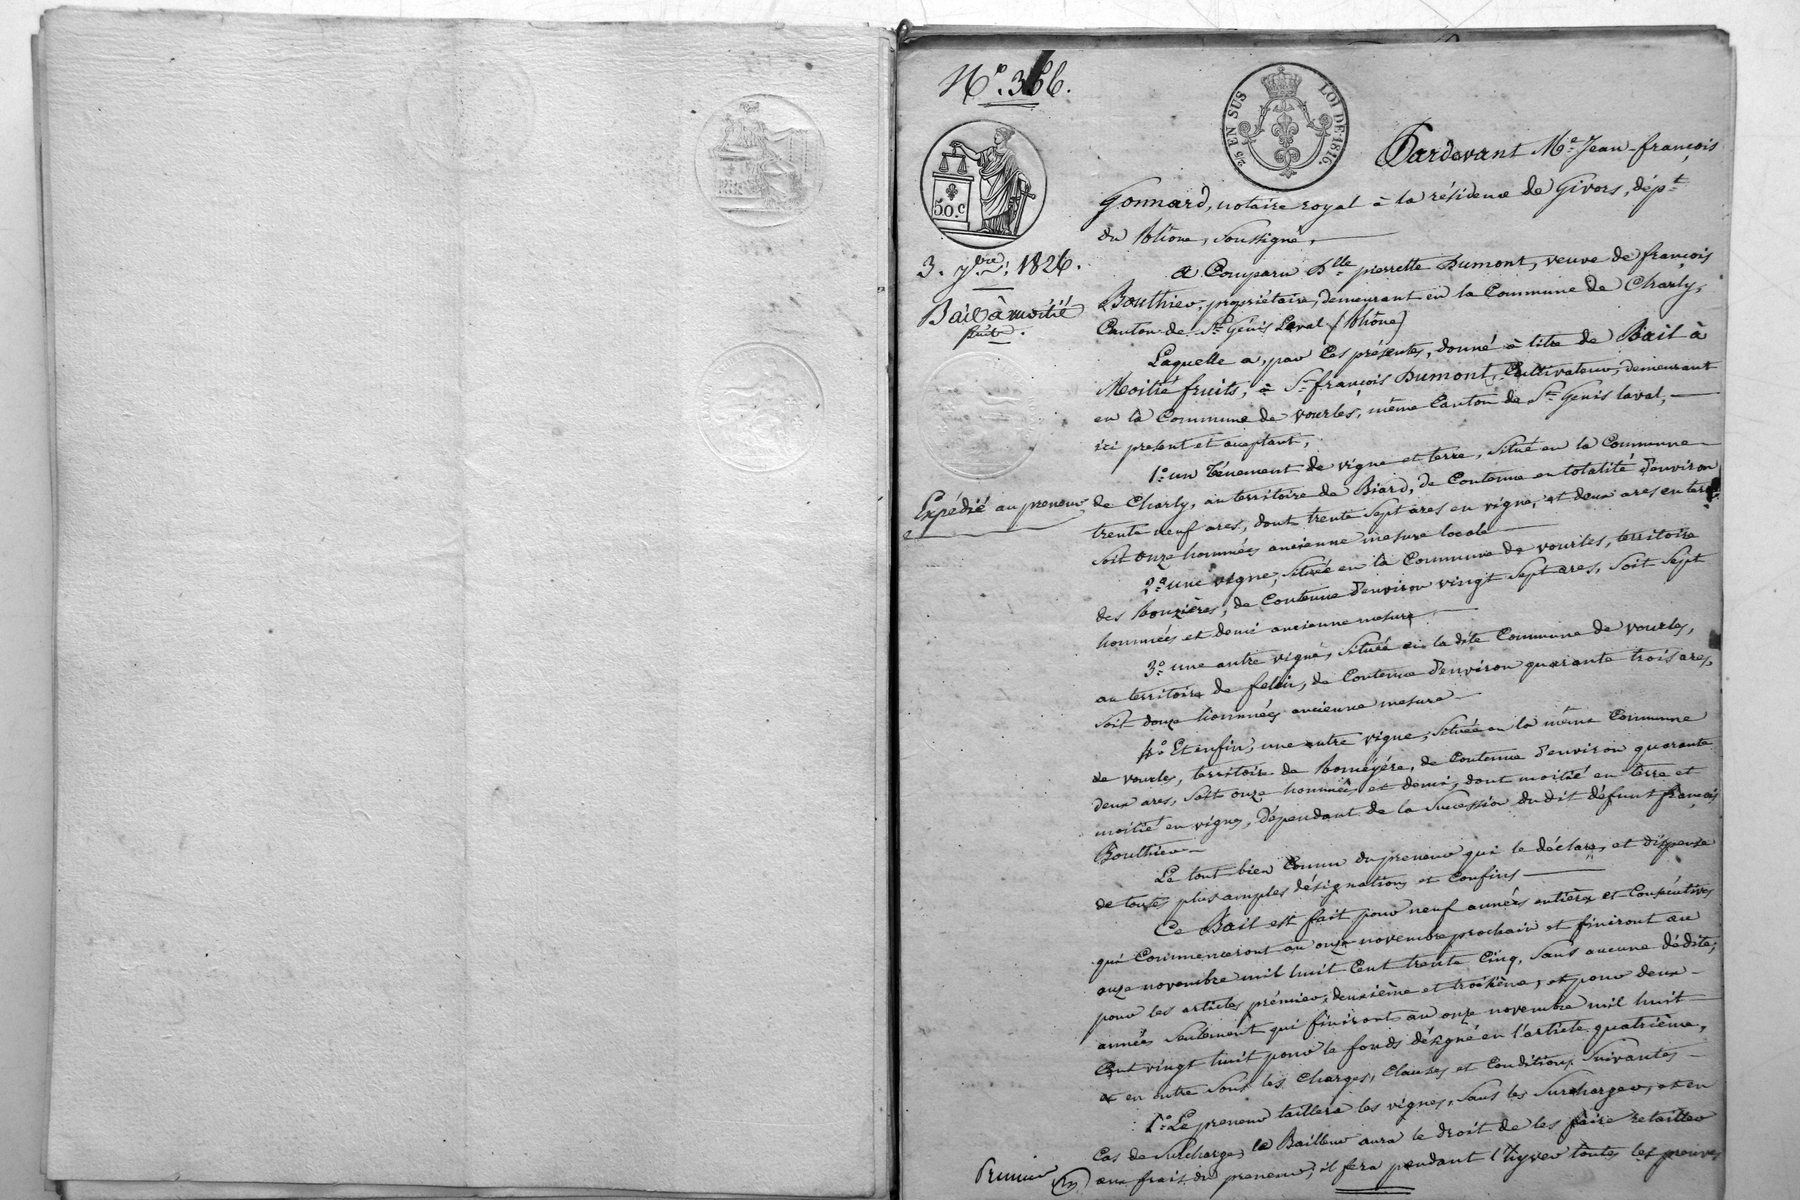 N.° 366.
2/5 EN SUS LOI DE 1816.
50.c
3. 7bre 1826.
Bail à moitié
fruits.
Expédié au preneur
Pardevant Me. Jean-françois
Gonnard, notaire royal à la résidence de Givors, dépt.
du Rhône, soussigné,
A Comparu Dlle pierrette Dumont, veuve de françois
Bouthier, propriétaire, demeurant en la Commune de Charly,
Canton de St. Genis Laval (Rhône)
Laquelle a, par Ces présentes, donné à titre de Bail à
Moitié fruits, à Sr. françois Dumont, Cultivateur, demeurant
en la Commune de vourles, même Canton de St. Genis laval,
ici présent et acceptant,
1.° un ténement de vigne et terre, Situé en la Commune
de Charly, au territoire de Biard, de Contenue en totalité d'environ
trente neuf ares, dont trente Sept ares en vigne, et deux ares en terre
Soit onze hommées ancienne mesure locale
2.° une vigne, Située en la Commune de vourles, territoire
des, de Contenue d'environ vingt Sept ares, Soit Sept
hommées et demi ancienne mesure
3.° une autre vigne, Située en la dite Commune de vourles,
au territoire de, de Contenue d'environ quarante trois ares,
Soit douze hommées ancienne mesure
4.° Et enfin, une autre vigne, Située en la même Commune
de vourles, territoire de, de Contenue d'environ quarante
deux ares, Soit onze hommées et demi, dont moitié en terre et
moitié en vigne, dépendant de la Succession dudit défunt françois
Bouthier
Le tout bien Connu du preneur qui le déclare, et dispense
de toutes plus amples désignations et Confins
Ce Bail est fait pour neuf années entières et Consécutives
qui Commenceront au onze novembre prochain et finiront au
onze novembre mil huit Cent trente Cinq, Sans aucune dédite,
pour les articles prémier, deuxième et troisième, et pour deux
années Seulement qui finiront au onze novembre mil huit
Cent vingt huit pour le fonds désigné en l'article quatrième,
et en outre Sous les Charges, Clauses et Conditions Suivantes
1.° Le preneur taillera les vignes, Sans les Surcharger, et en
Cas de Surcharge, le Bailleur aura le droit de les faire retailler
aux frais du preneur; il fera pendant l'hyver toutes les